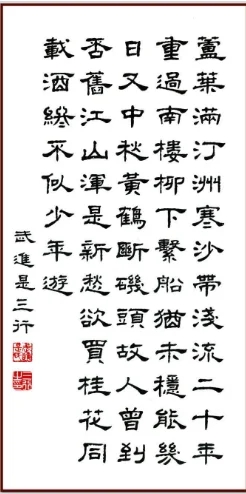 蘆葉滿汀洲寒沙帶淺流二十年
重過南樓柳下繫船猶未穩能幾
日又中秋黃鶴斷磯頭故人曾到
否舊江山渾是新愁欲買桂花同
載酒終不似少年遊
武進是三行